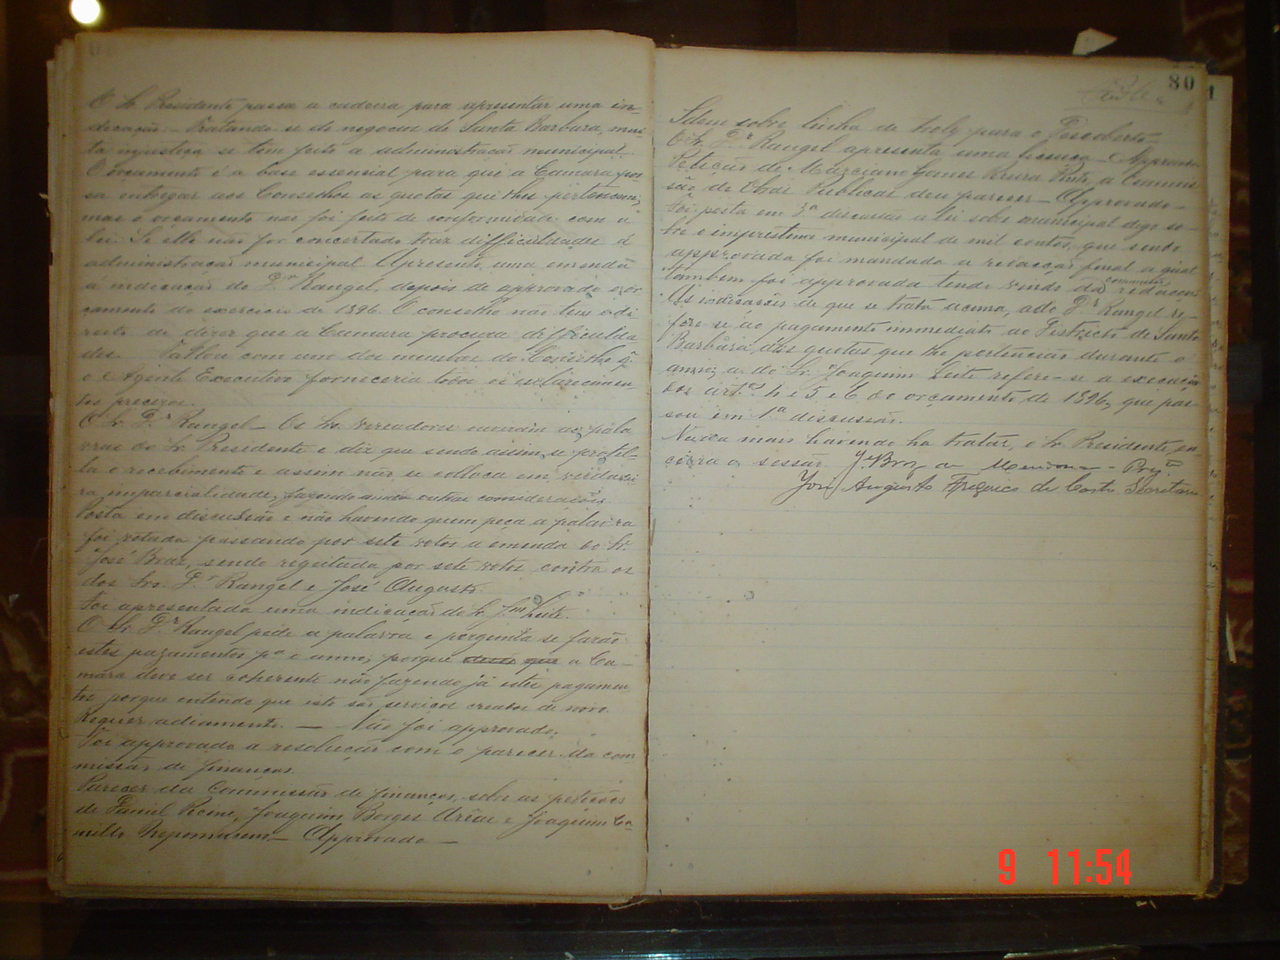 O Sr. Presidente passa a cadeira para apresentar uma in-
dicação. Tratando se de negocios de Santa Barbara, mui-
ta injustiça se tem feito a administração municipal.
O orçamento é a base essencial para que a Camara pos-
sa entregar aos Conselhos as quotas que lhes pertencem,
mas o orçamento não foi feito de conformidade com a
lei. Se elle não for concertado traz difficuldades á
administração municipal. Apresenta uma emenda
a indicação do Dr. Rangel, depois de approvado o or-
çamento do exercicio de 1896. O conselho não tem o di-
reito de dizer que a Camara procura difficulda
des. Fallou com um dos membros do Conselho q.
o Agente Executivo forneceria todos os esclarecimen
tos precisos.
O Sr. Dr. Rangel — Os Srs. vereadores ouvirão as pala
vras do Sr. Presidente e diz que sendo assim, se profil-
la o recebimento e assim não se colloca em verdadei
ra imparcialidade, fazendo ainda outras considerações.
Posta em discussão e não havendo quem peça a palavra
foi votada passando por sete votos a emenda do Sr.
José Braz, sendo regeitada por sete votos contra os
dos Srs. Dr. Rangel e José Augusto.
Foi apresentada uma indicação do Sr. Jm. Leite.
O Sr. Dr. Rangel pede a palavra e pergunta se farão
estes pagamentos pa. o anno, porque a Ca-
mara deve ser coherente não fazendo já estes pagamen
tos porque entende que este são serviços creados de novo.
Requer adiamento. — Não foi approvado.
Foi approvada a resolução com o parecer da com
missão de finanças.
Parecer da Commissão de finanças, sobre as petições
de Daniel Joaquim Borges e Joaquim Ca
millo Nepomuceno — Approvado —
80
Idem sobre linha de boly para o
O Sr. Dr. Rangel apresenta uma licença — Approv.
Petição de Gomes a Commis
são de Obras Publicas deu parecer — Approvado —
Foi posta em 3a discussão a lei sobre municipal digo so-
bre emprestimo municipal de mil contos, que sendo
approvada foi mandada a redacção final a qual
tambem foi approvada tendo vindo da commissão redacção
As indicações de que se trata acima, a do Dr. Rangel re-
fere se ao pagamento immediato ao Districto de Santa
Barbara, das quotas que lhe pertencião durante o
anno; a do Sr. Joaquim Leite refere-se a execução
dos artos. 4 e 5 e 6 do orçamento de 1896, que pas-
sou em 1a discussão.
Nada mais havendo ha tratar, o Sr. Presidente, en
cerra a sessão. J. Braz de Mendonça - Prze.
José Augusto de Castro Secretario
9 11:54